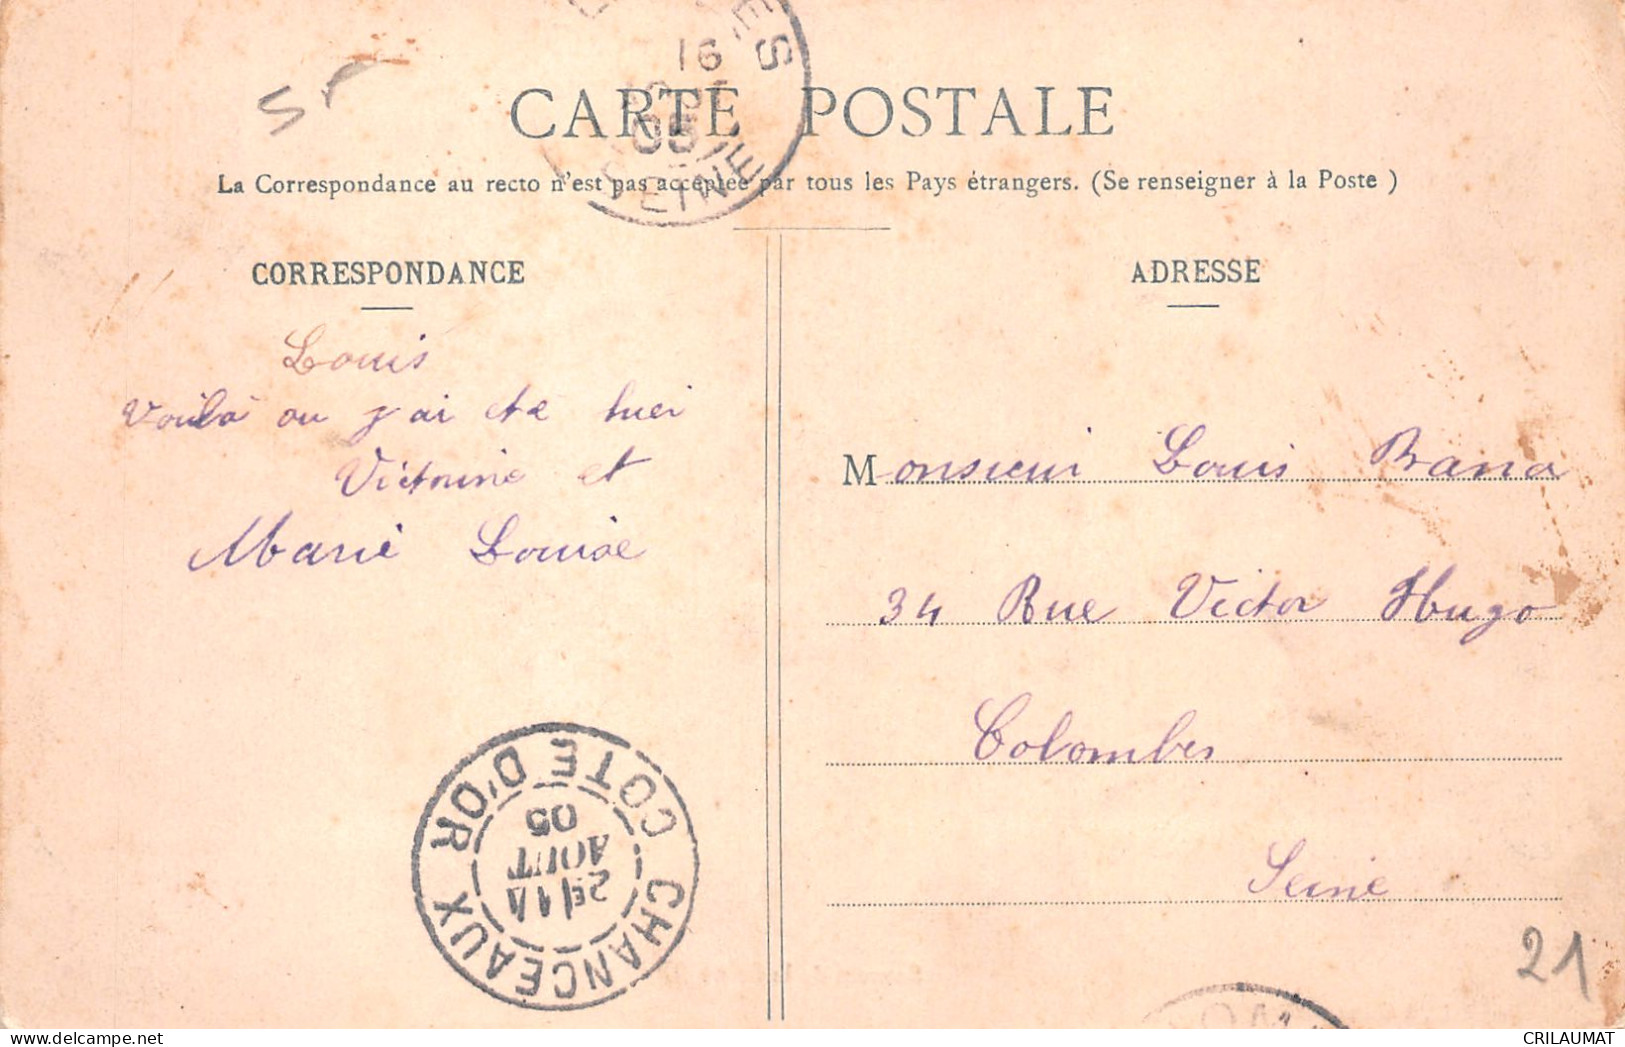 CARTE POSTALE
La Correspondance au recto n'est pas acceptée par tous les Pays étrangers. (Se renseigner à la Poste )
16
05
SEINE
CORRESPONDANCE
Louis
Voila ou j'ai ete hier
Victorine et
Marie Louise
CHANCEAUX COTE D'OR
2E 14
AOUT
05
ADRESSE
Monsieur Louis
34 Rue Victor Hugo
Colombes
Seine
21
CRILAUMAT